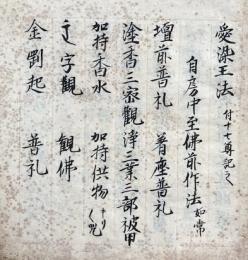 愛染王法 付十七尊記之
自房中至佛前作法如常
壇前普礼 着座普礼
塗香三密觀 淨三業三部被甲
加持香水 加持供物
字觀 觀佛
金剛起 普礼